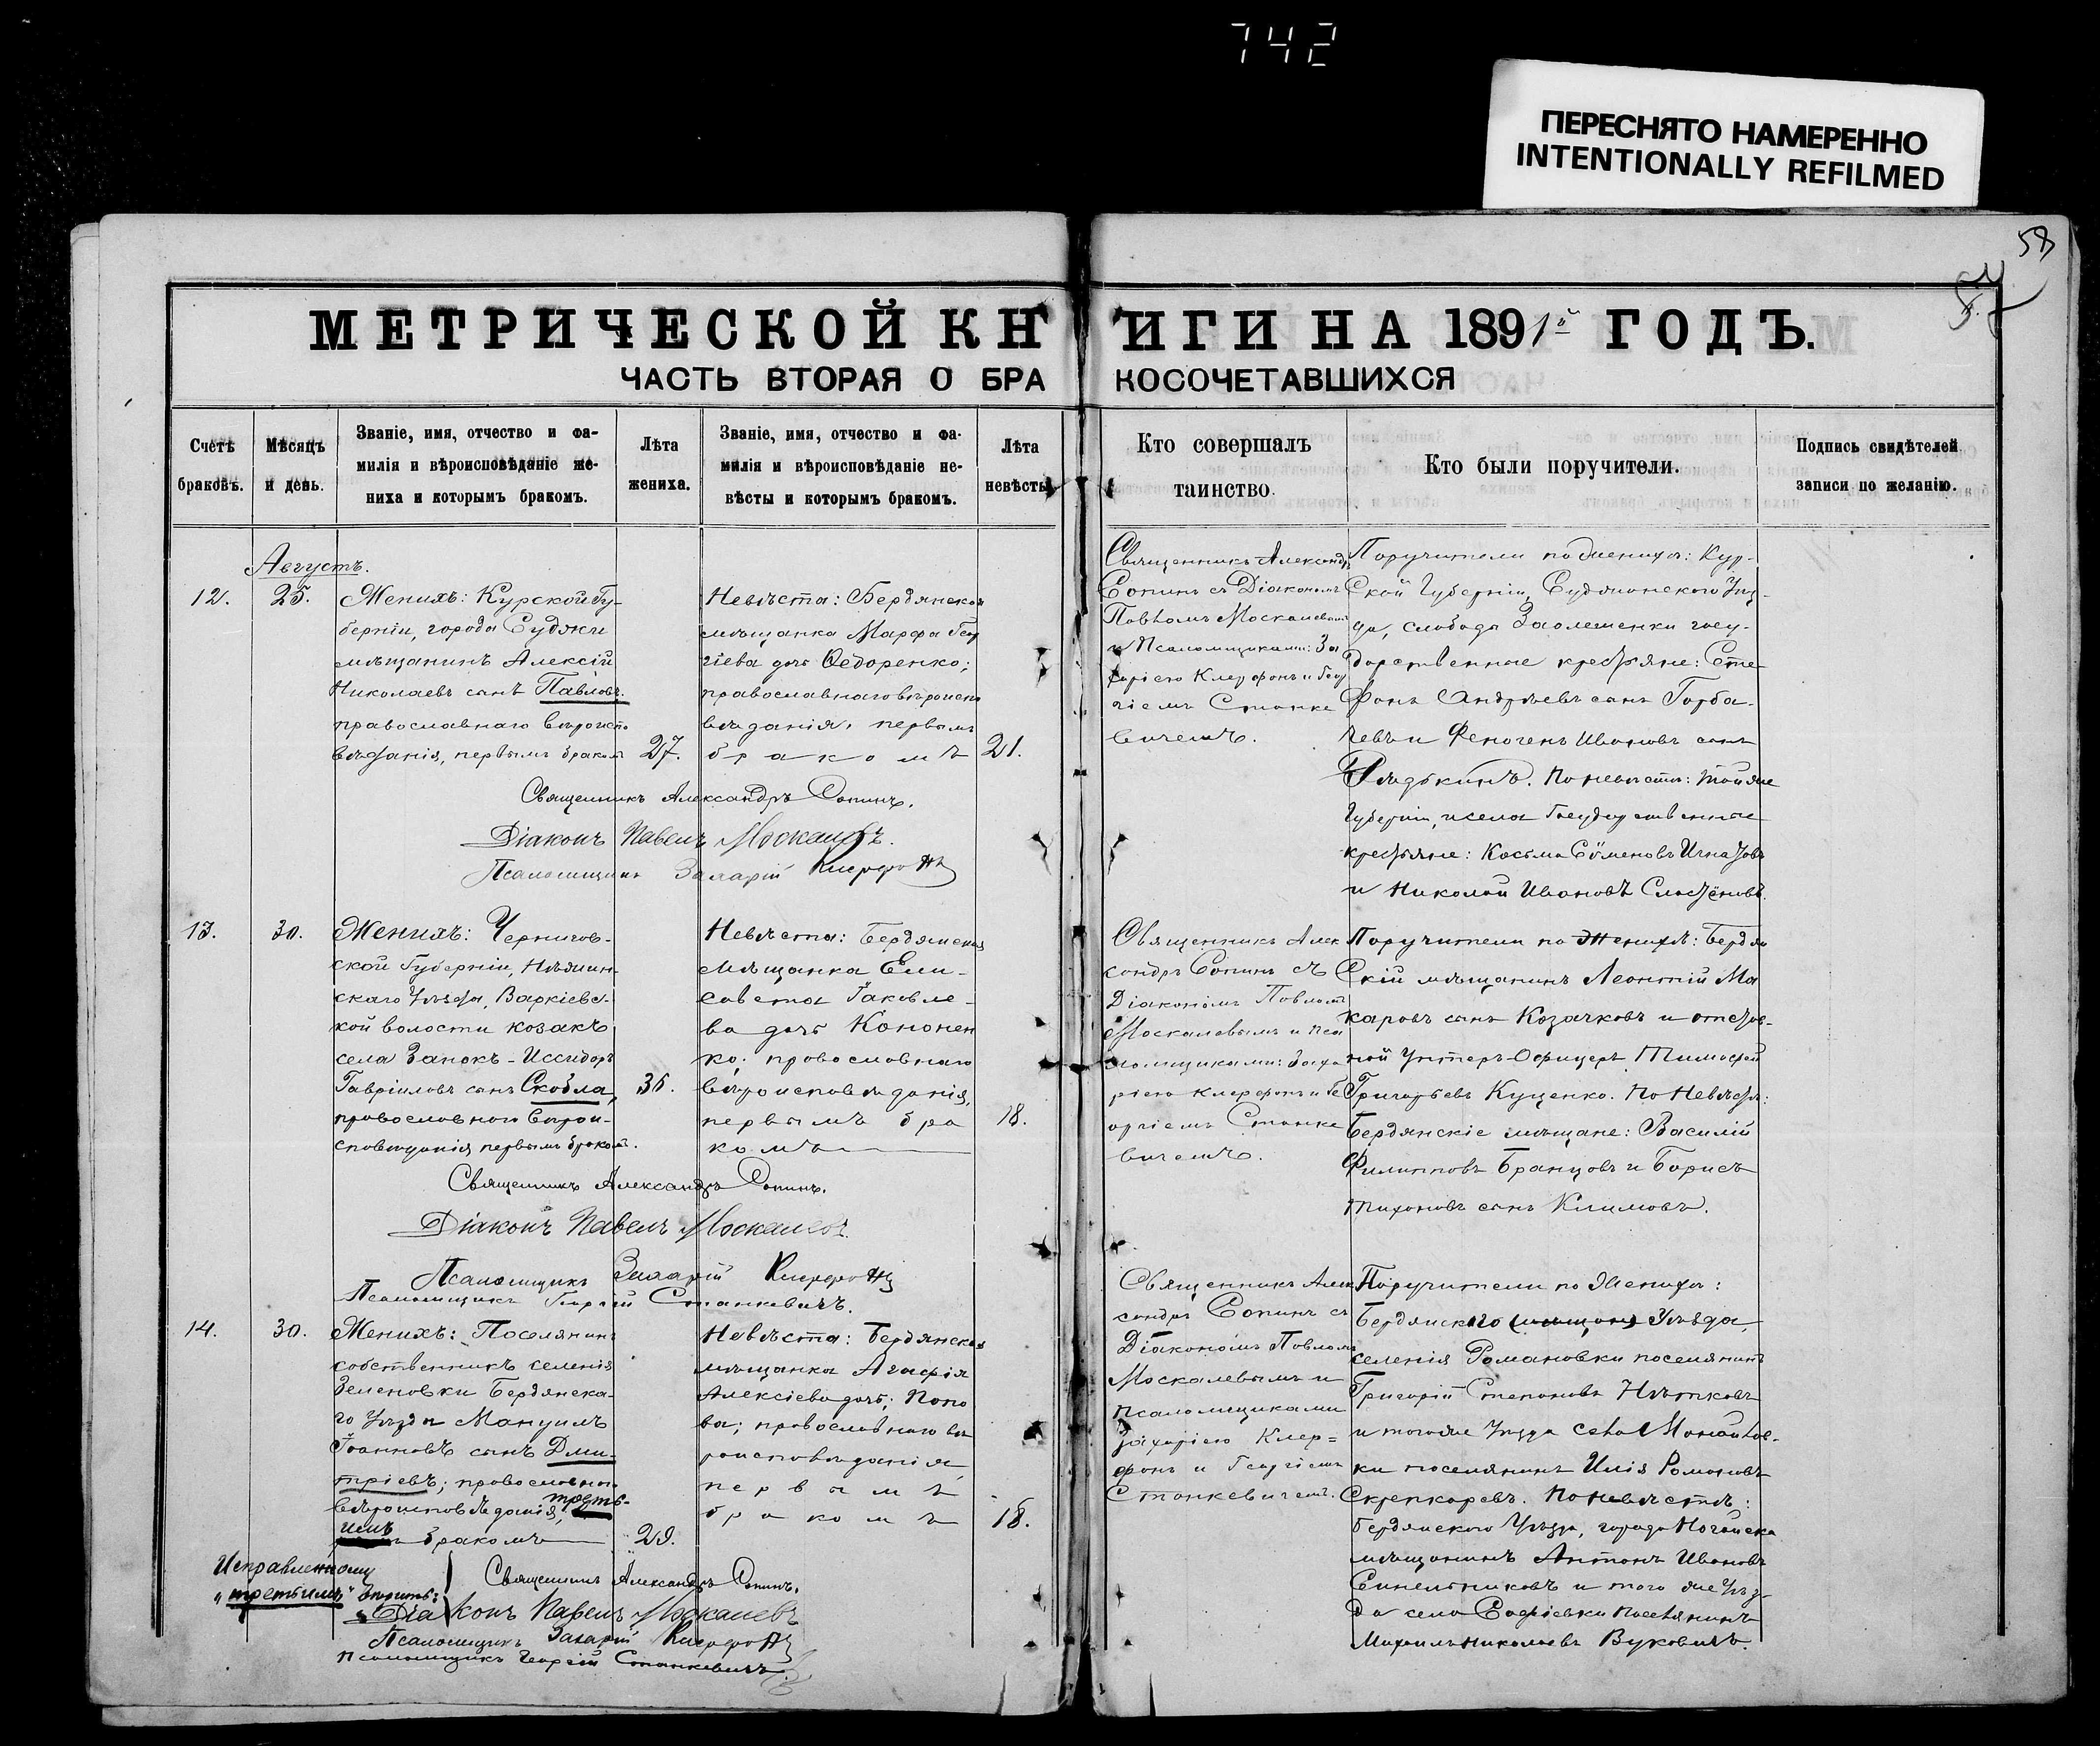 742
ПЕРЕСНЯТО НАМЕРЕННО
INTENTIONALLY REFILMED
58
МЕТРИЧЕСКОЙ КНИГИ НА 1891й ГОДЪ.
ЧАСТЬ ВТОРАЯ О БРАКОСОЧЕТАВШИХСЯ
Счетъ
браковъ.
Мѣсяцъ
и день.
Званіе, имя, отчество и фа-
милія и вѣроисповѣданіе же-
ниха и которымъ бракомъ.
Лѣта
жениха.
Званіе, имя, отчество и фа-
милія и вѣроисповѣданіе не-
вѣсты и которымъ бракомъ.
Лѣта
невѣсты
Кто совершалъ
таинство.
Кто были поручители.
Подпись свидѣтелей
записи по желанію.
Августъ.
12.
25.
Женихъ: Курской Гу-
берніи, города Суджи
мѣщанинъ Алексій
Николаевъ сынъ Павловъ.
православнаго вѣроиспо
вѣданія, первымъ бракомъ
27.
Невѣста: Бердянская
мѣщанка Марфа Геор
гіева дочь Ѳедоренко;
православнаго вѣроиспо
вѣданія, первымъ
бракомъ
21.
Священникъ Александръ
Сопинъ съ Діакономъ
Павломъ Москалевымъ
и Псаломщиками: За
харіею Клерфонъ и Геор
гіемъ Станке
вичемъ.
Поручители по женихѣ: Кур-
ской Губерніи, Суджанскаго Уѣз-
да, слобода Заолешенки госу-
дарственные крестьяне: Сте
фанъ Андреевъ сынъ Горба-
чевъ и Феногенъ Ивановъ сынъ
Рядькинъ. По невѣстѣ: той же
Губерніи, и села Государственные
крестьяне: Косьма Сѵменовъ Игнатовъ
и Николай Ивановъ
Священникъ Александръ Сопинъ.
Діаконъ Павелъ Москалевъ.
Псаломщикъ Захарій Клерфонъ
13.
30.
Женихъ: Чернигов-
ской Губерніи, Нѣжин-
скаго Уѣзда, Варкіевс-
кой волости козакъ
села Занокъ - Иссидоръ
Гавріиловъ сынъ Скобла,
православнаго вѣрои-
сповѣданія первымъ бракомъ.
36.
Невѣста: Бердянская
Мѣщанка Ели-
савета Іаковле-
ва дочь Кононен
ко; православнаго
вѣроисповѣданія,
первымъ бра
комъ
18.
Священникъ Алек
сандръ Сопинъ съ
Діакономъ Павломъ
Москалевымъ и Пса
ломщиками: Заха
ріею Клерфонъ и Ге
оргіемъ Станке
вичемъ.
Поручители по Женихѣ: Бердян
скій мѣщанинъ Леонтій Ма
каровъ сынъ Козачковъ и отстав-
ной Унтеръ-Офицеръ Тимофей
Григорьевъ Куценко. По Невѣстѣ:
Бердянскіе мѣщане: Василій
Филипповъ Бранцовъ и Борисъ
Тихоновъ сынъ Климовъ.
Священникъ Александръ Сопинъ.
Діаконъ Павелъ Москалевъ.
Псаломщикъ Захарій Клерфонъ
Псаломщикъ Георгій Станкевичъ.
14.
30.
Женихъ: Поселянинъ
собственникъ селенія
Зеленовки Бердянска-
го Уѣзда Мануилъ
Іоанновъ сынъ Дми-
тріевъ; православнаго
вѣроисповѣданія, треть-
имъ бракомъ
29.
Невѣста: Бердянская
мѣщанка Агафія
Алексіева дочь; Попо
ва; православнаго вѣ
роисповѣданія,
первымъ
бракомъ
18.
Священникъ Алек
сандръ Сопинъ съ
Діакономъ Павломъ
Москалевымъ и
псаломщиками
Захаріею Клер=
фонъ и Георгіемъ
Станкевичемъ.
Поручители по Женихѣ:
Бердянскаго (мѣщан) Уѣзда,
селенія Романовки поселянинъ
Григорій Степановъ Нѣтковъ
и того же Уѣзда села Мануйлов-
ки поселянинъ Илія Романовъ
Скрепкаревъ. По невѣстѣ:
Бердянскаго Уѣзда, города Ногайска
мѣщанинъ Антонъ Ивановъ
Синельниковъ и того же Уѣз-
да села Софіевки Поселянинъ
Михаилъ Николаевъ Вуковичъ.
Исправленному
"третьимъ" вѣрить:
Священникъ Александръ Сопинъ.
Діаконъ Павелъ Москалевъ
Псаломщикъ Захарій Клерфонъ
Псаломщикъ Георгій Станкевичъ.